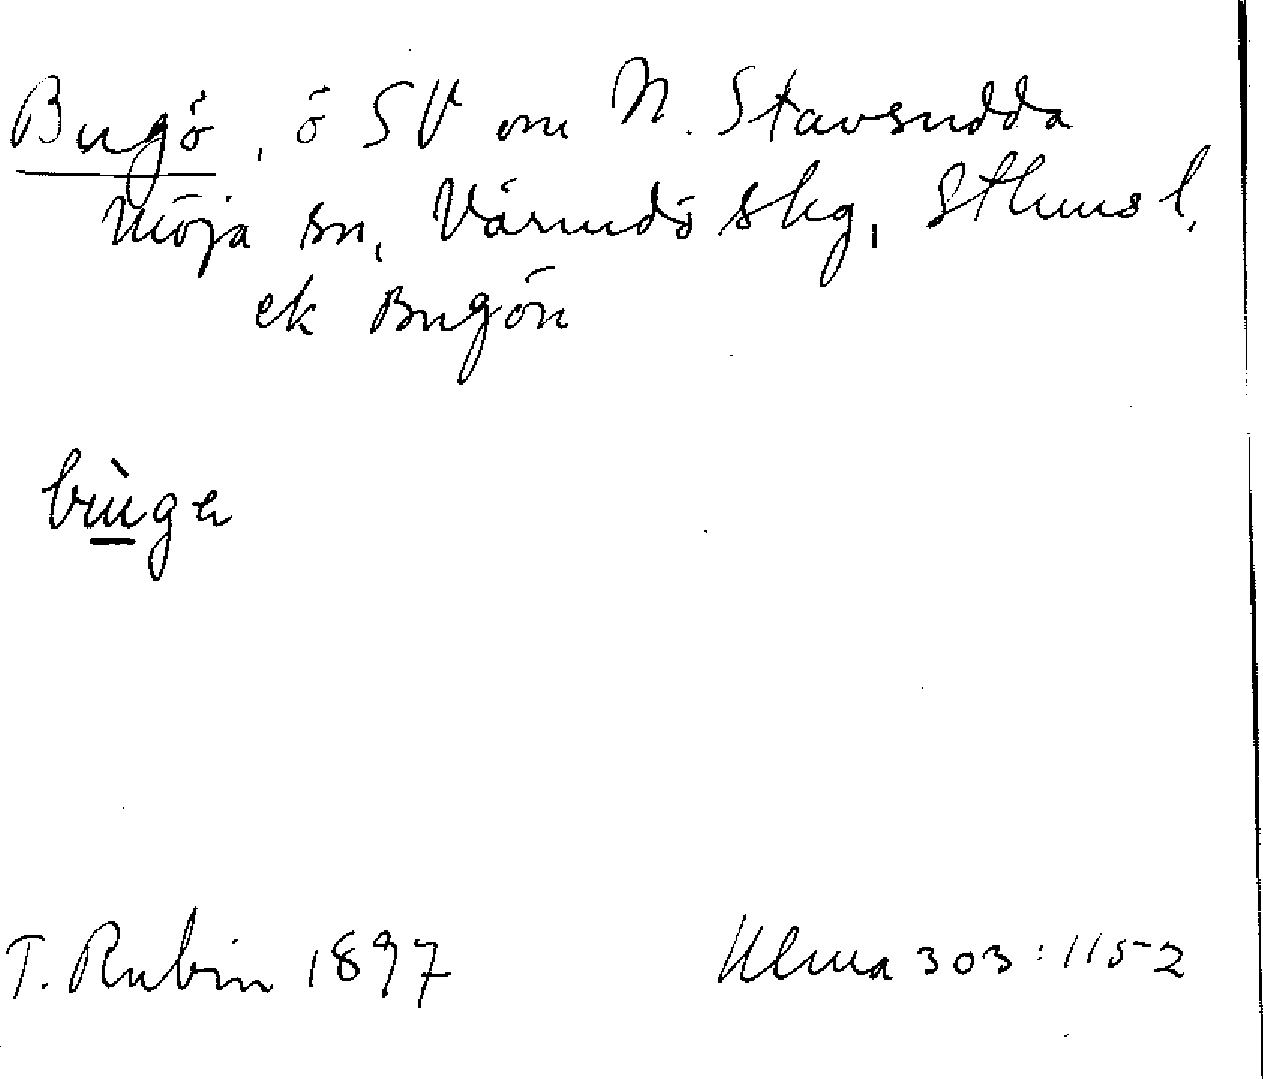 Bugö, ö SV om N. Stavsudda
Möja sn, Värmdö skg, Sthms l.
ek Bugön
bùge
T. Rubin 1897
Ulma 303:1152